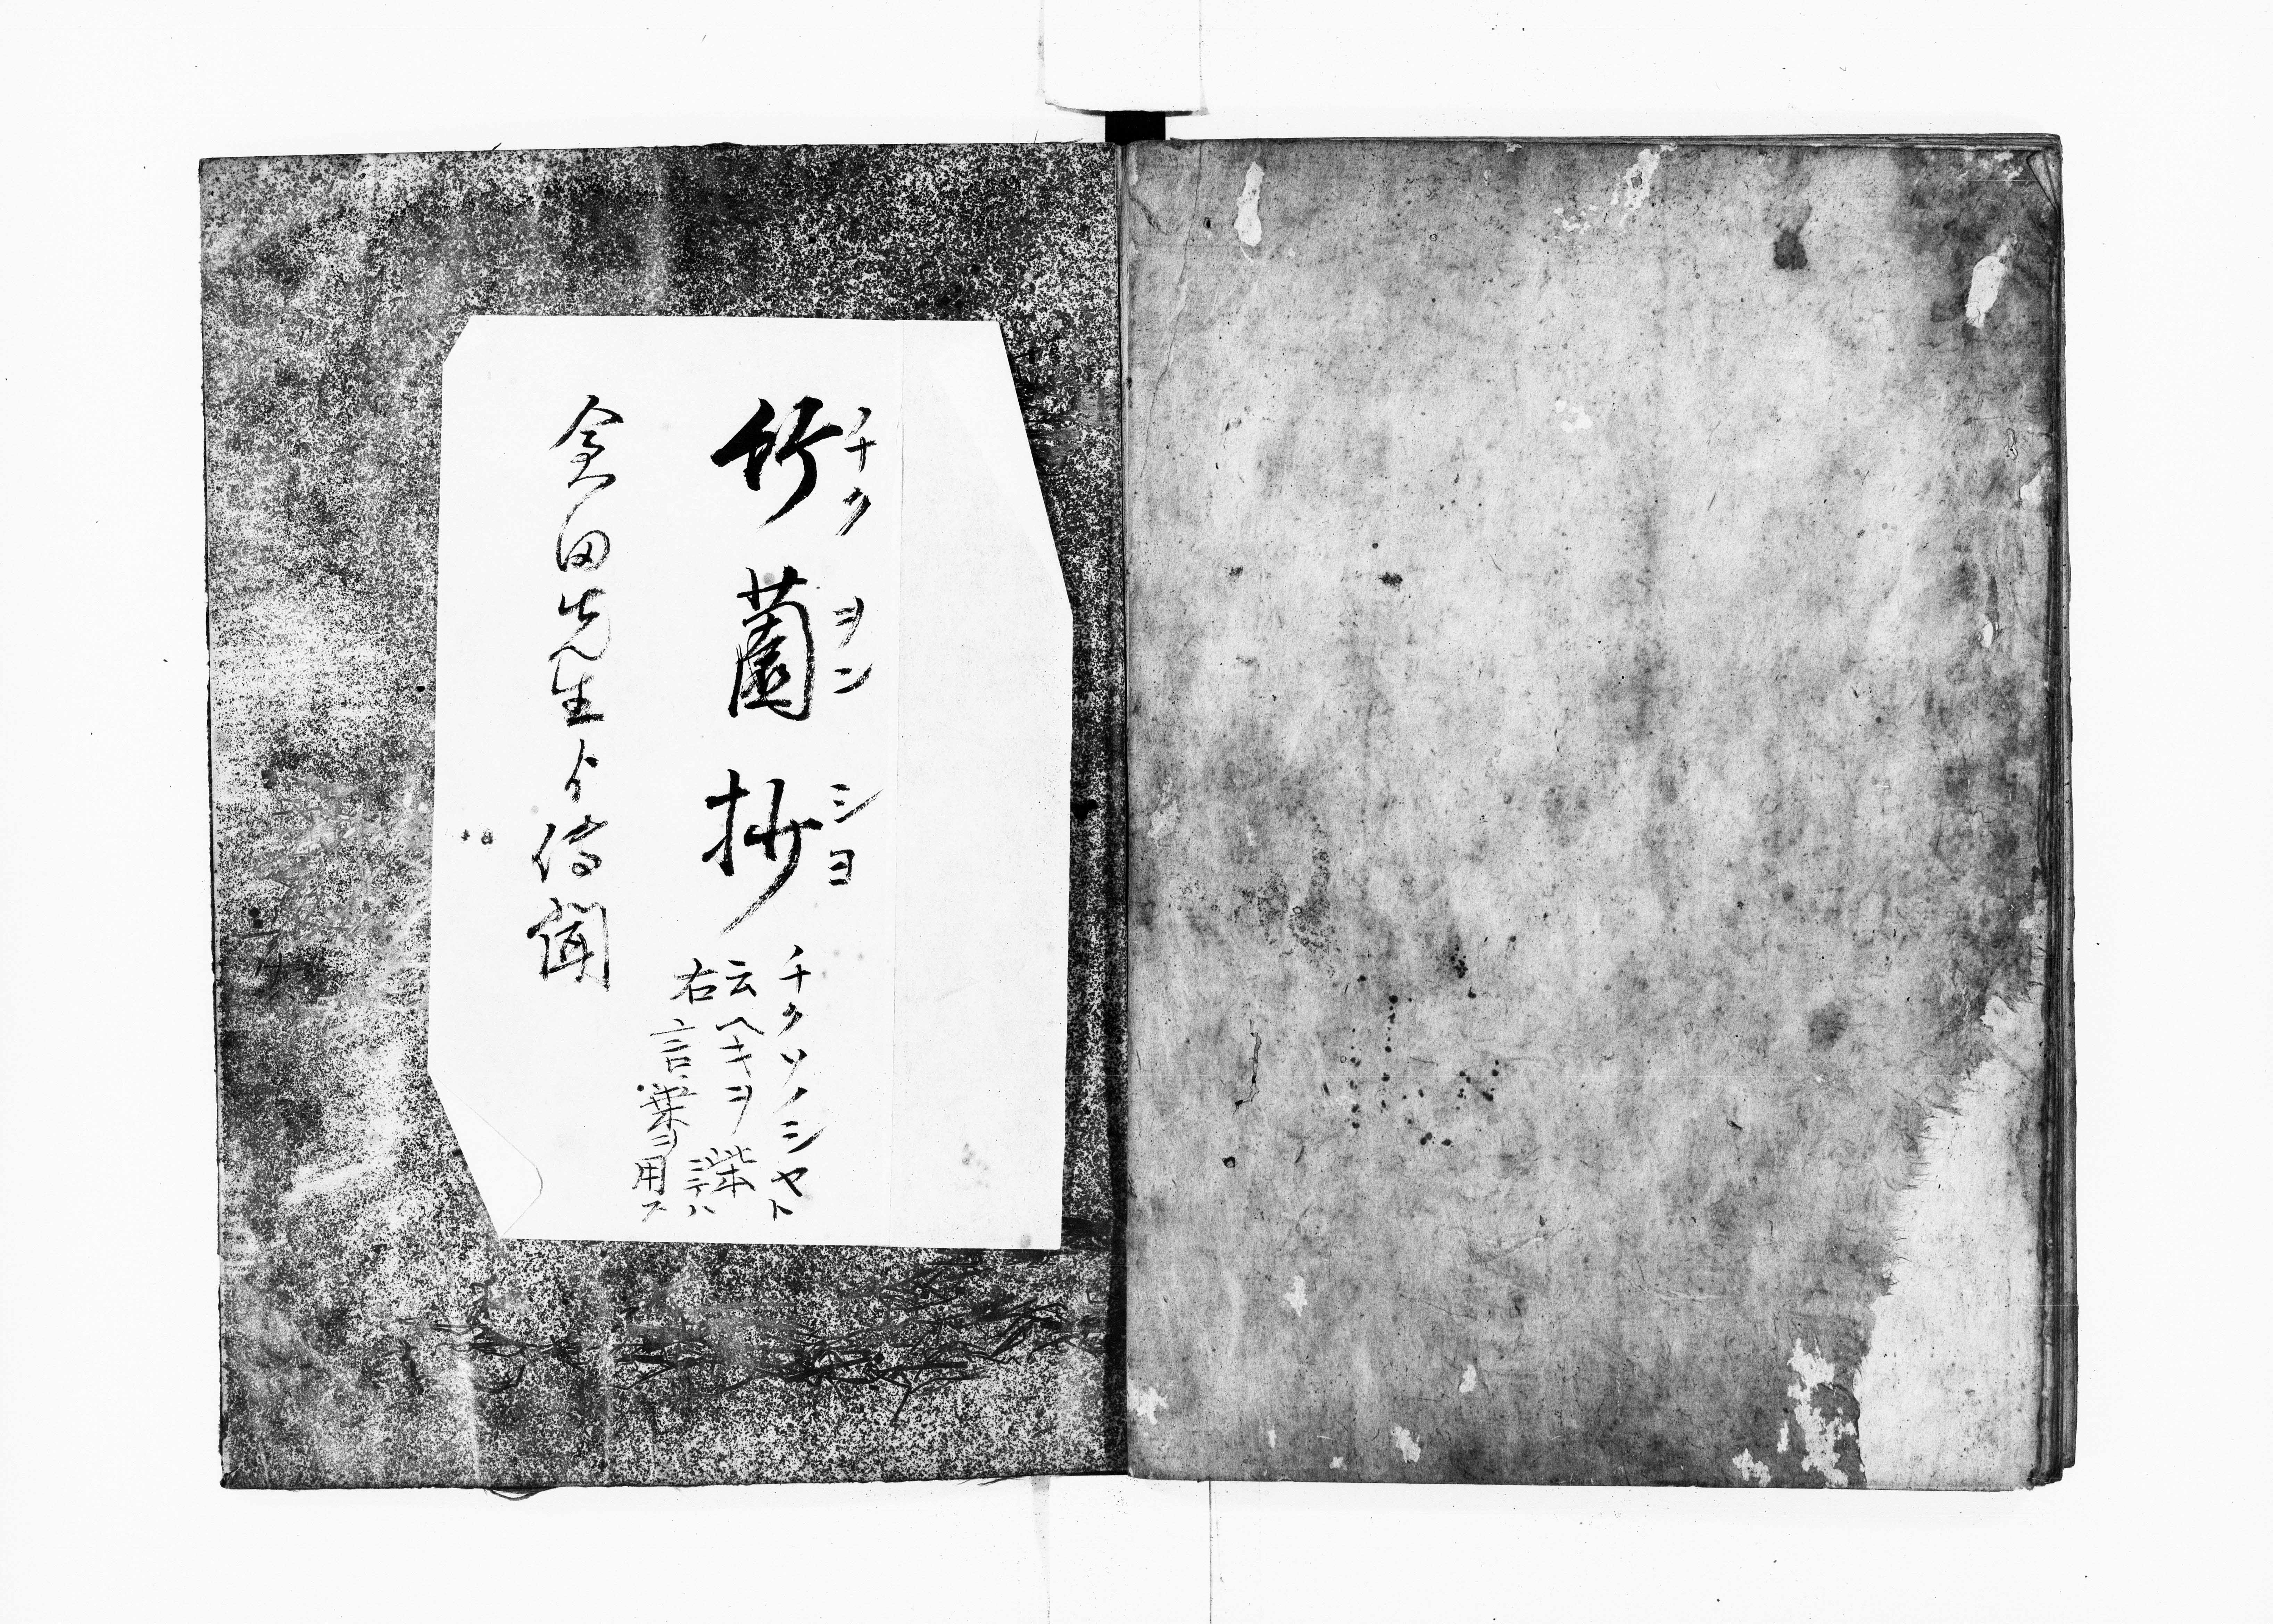 チク ヲン シヨ
竹薗抄
チクソノシヤト
云ヘキヲ 柴
ミテハ
右言葉ヲ用ス
金田先生ゟ傳聞